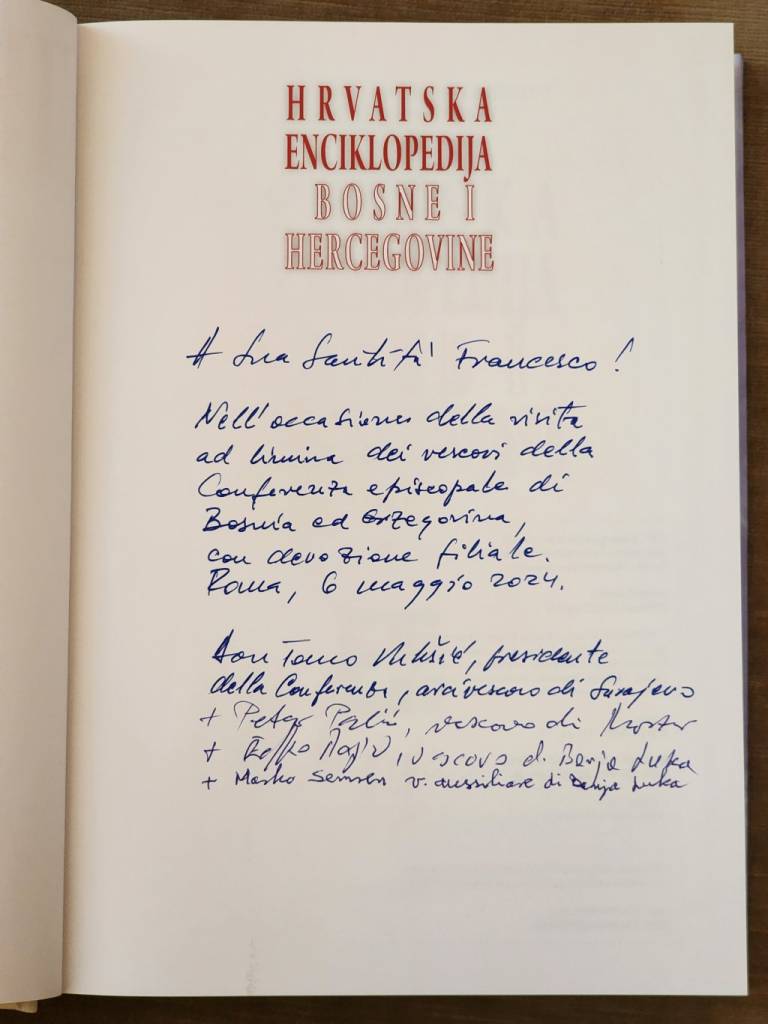 HRVATSKA
ENCIKLOPEDIJA
BOSNE I
HERCEGOVINE
A Sua Santità Francesco!
Nell'occasione della visita
ad limina dei vescovi della
Conferenza episcopale di
Bosnia ed Erzegovina,
con devozione filiale.
Roma, 6 maggio 2024.
don Tomo Vukšić, presidente
della Conferenza, arcivescovo di Sarajevo
+ Petar Palić, vescovo di Mostar
+ Željko Majić, vescovo di Banja Luka
+ Marko Semren v. aussiliare di Banja Luka